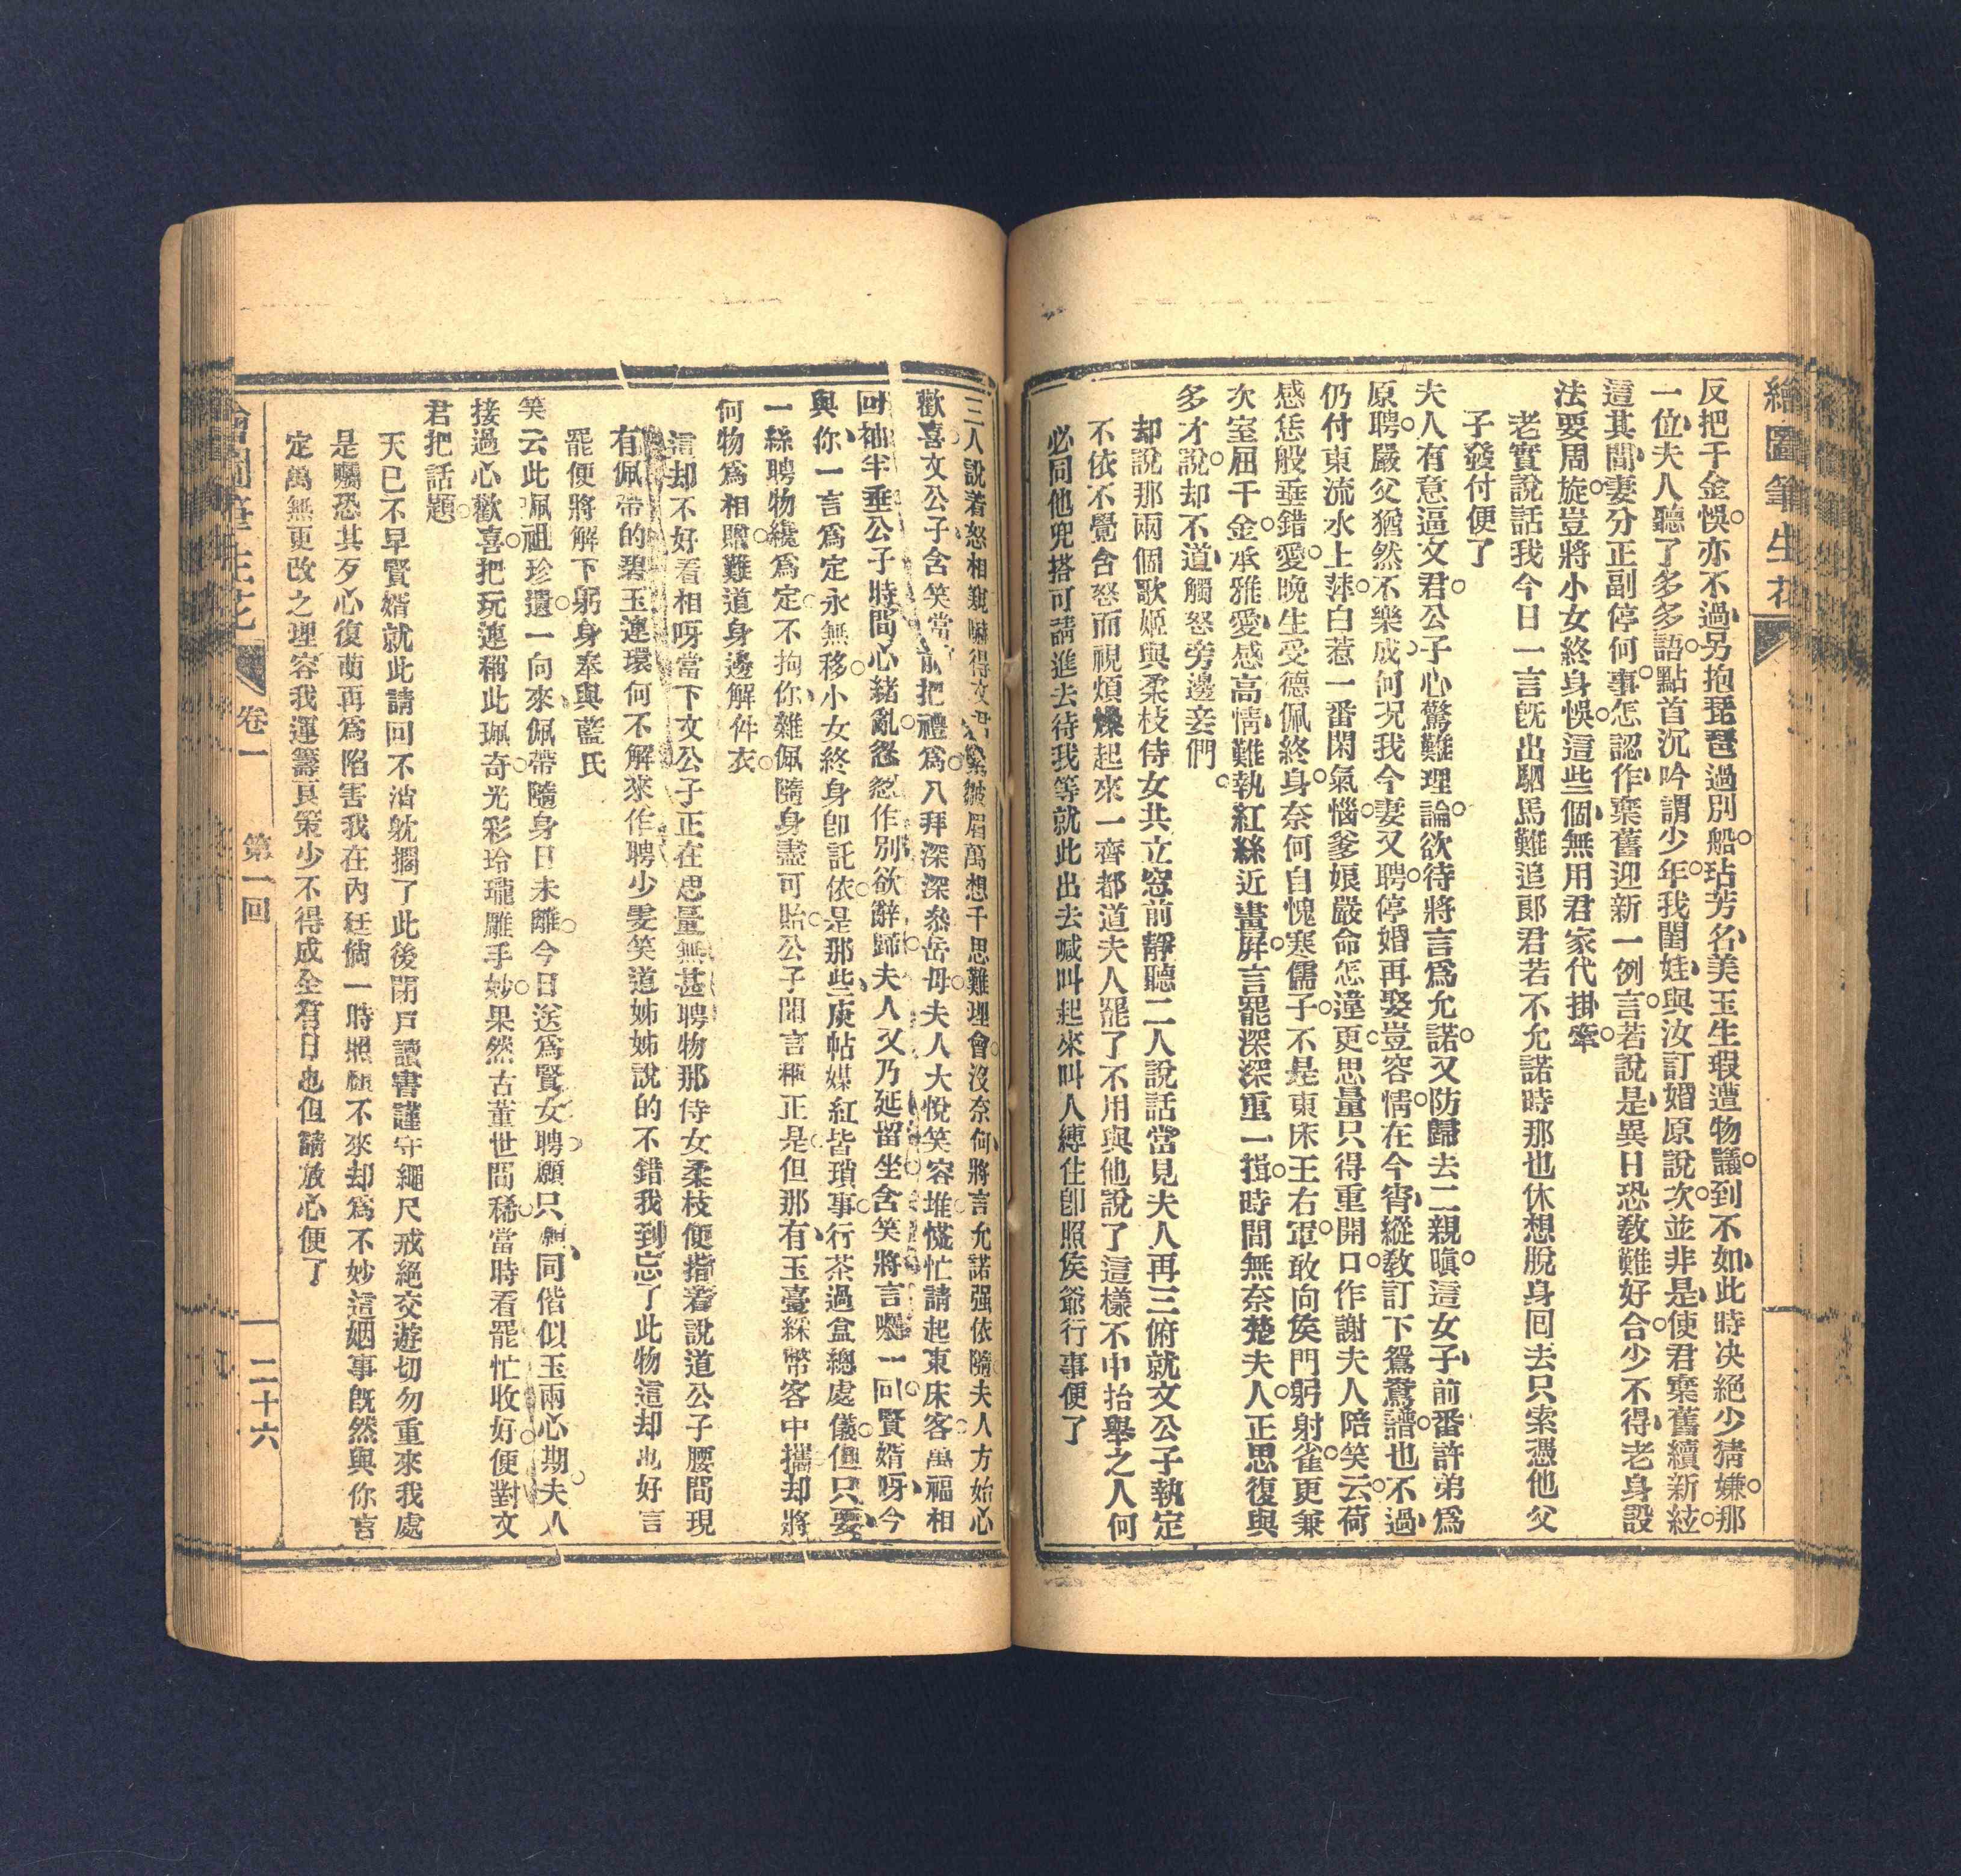 繪圖筆生花
反把千金悞。亦不過另抱琵琶過別船。玷芳名美玉生瑕遭物議。到不如此時決絕少猜嫌。那
一位夫人聽了多多語。點首沉吟謂少年。我閨娃與汝訂婚原說次。並非是使君棄舊續新絃。
這其間妻分正副停何事。怎認作棄舊迎新一例言。若說是異日恐敎難好合。少不得老身設
法要周旋。豈將小女終身悞。這些個無用君家代掛牽。
老實說話我今日一言旣出駟馬難追郎君若不允諾時那也休想脫身回去只索憑他父
子發付便了
夫人有意逼文君。公子心驚難理論。欲待將言爲允諾。又防歸去二親嗔。這女子前番許弟爲
原聘。嚴父猶然不樂成。何況我今妻又聘。停婚再娶豈容情。在今宵縱敎訂下鴛鴦譜。也不過
仍付東流水上萍。白惹一番閑氣惱。爹娘嚴命怎違更。思量只得重開口。作謝夫人陪笑云。荷
感恁般垂錯愛。晚生受德佩終身。奈何自愧寒儒子。不是東床王右軍。敢向侯門躬射雀。更兼
次室屈千金。承雅愛感高情難執紅絲近畫屏。言罷深深重一揖。時間無奈楚夫人。正思復與
多才說。却不道觸怒旁邊妾們。
却說那兩個歌姬與柔枝侍女共立窓前靜聽二人說話當見夫人再三俯就文公子執定
不依不覺含怒而視煩燥起來一齊都道夫人罷了不用與他說了這樣不中抬舉之人何
必同他兜搭可請進去待我等就此出去喊叫起來叫人縛住卽照侯爺行事便了
三人說着怒相覷嚇得文君緊皺眉萬想千思難理會。沒奈何將言允諾强依隨。夫人方始心
歡喜。文公子含笑當前把禮爲。八拜深深叅岳母。夫人大悅笑容堆。慌忙請起東床客。萬福相
回袖半垂。公子時間心緒亂。怱怱作別欲辭歸。夫人又乃延留坐。含笑將言囑一回。賢婿呀今
與你一言爲定永無移。小女終身卽託依。是那些庚帖媒紅皆瑣事。行茶過盒總虛儀。但只要
一絲聘物纔爲定。不拘你雜佩隨身盡可貽。公子聞言稱正是。但那有玉臺綵幣客中攜。却將
何物爲相贈。難道身邊解件衣。
這却不好看相呀當下文公子正在思量無甚聘物那侍女柔枝便指着說道公子腰間現
有佩帶的碧玉連環何不解來作聘少雯笑道姊姊說的不錯我到忘了此物這却也好言
罷便將解下躬身奉與藍氏
笑云此珮祖珍遺。一向來佩帶隨身日未離。今日送爲賢女聘。願只願同偕似玉兩心期。夫人
接過心歡喜。把玩連稱此珮奇。光彩玲瓏雕手妙。果然古董世間稀。當時看罷忙收好。便對文
君把話題。
天已不早賢婿就此請回不消躭擱了此後閉戶讀書謹守繩尺戒絕交遊切勿重來我處
是囑恐其歹心復萌再爲陷害我在內廷倘一時照顧不來却爲不妙這姻事旣然與你言
定萬無更改之理容我運籌良策少不得成全有日也但請放心便了
繪圖筆生花 卷一 第一回 二十六